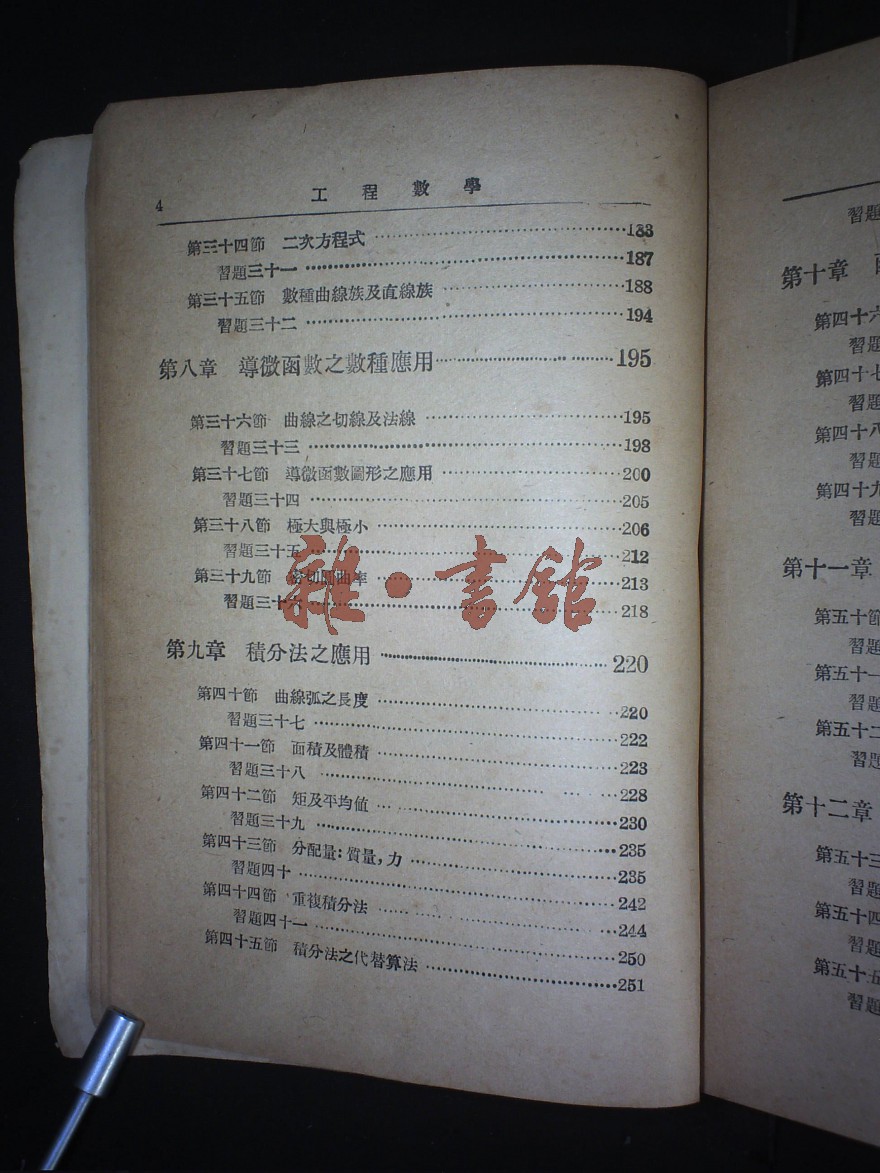 4 工程數學
第三十四節 二次方程式 183
習題三十一 187
第三十五節 數種曲線族及直線族 188
習題三十二 194
第八章 導微函數之數種應用 195
第三十六節 曲線之切線及法線 195
習題三十三 198
第三十七節 導微函數圖形之應用 200
習題三十四 205
第三十八節 極大與極小 206
習題三十五 212
第三十九節 密切圓曲率 213
習題三十六 218
雜·書館
第九章 積分法之應用 220
第四十節 曲線弧之長度 220
習題三十七 222
第四十一節 面積及體積 223
習題三十八 228
第四十二節 矩及平均値 230
習題三十九 235
第四十三節 分配量:質量,力 235
習題四十 242
第四十四節 重複積分法 244
習題四十一 250
第四十五節 積分法之代替算法 251
習題
第十章
第四十六
習題
第四十七
習題
第四十八
習題
第四十九
習題
第十一章
第五十節
習題
第五十一
習題
第五十二
習題
第十二章
第五十三
習題
第五十四
習題
第五十五
習題